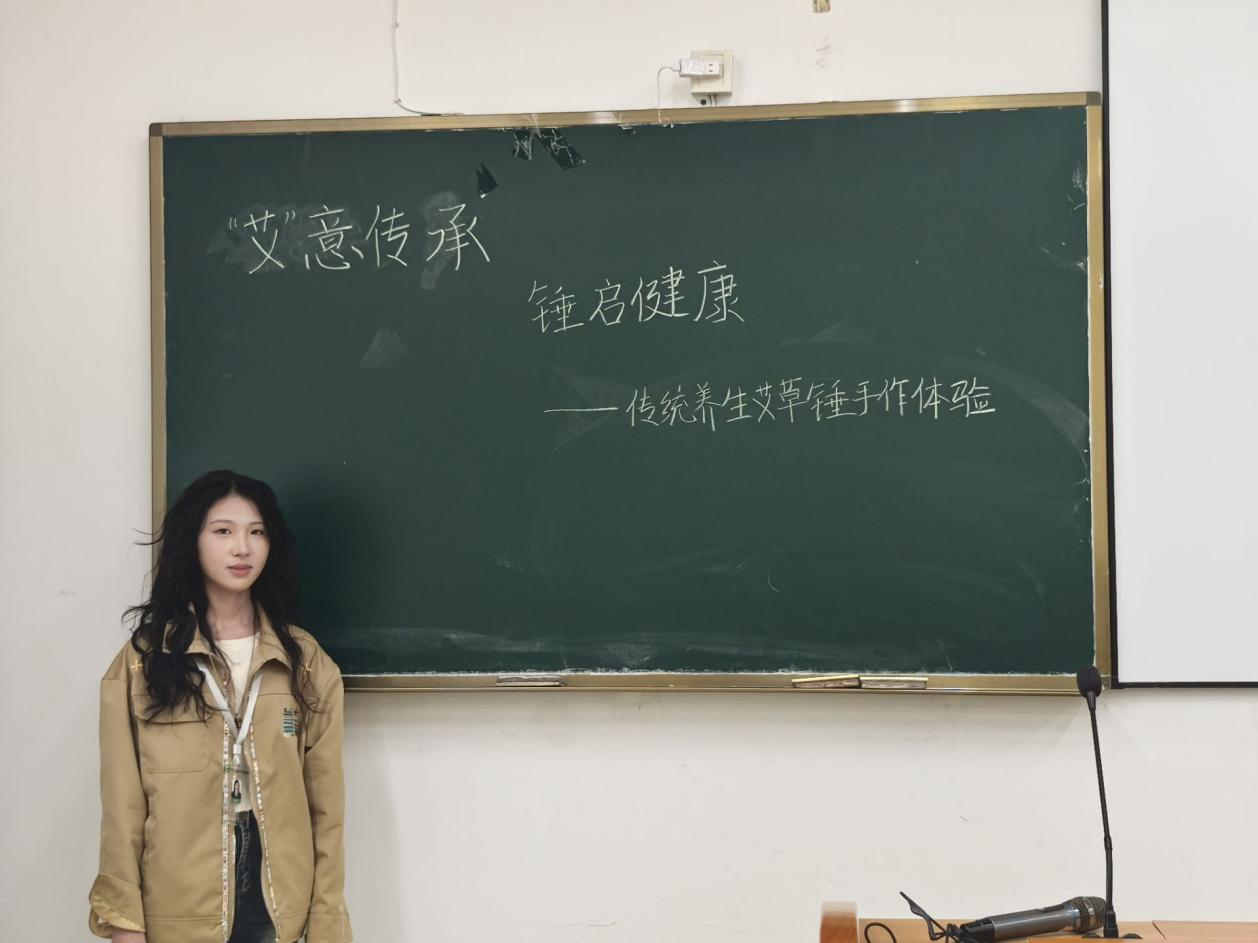 “艾”意传承
锤启健康
——传统养生艾草锤手作体验